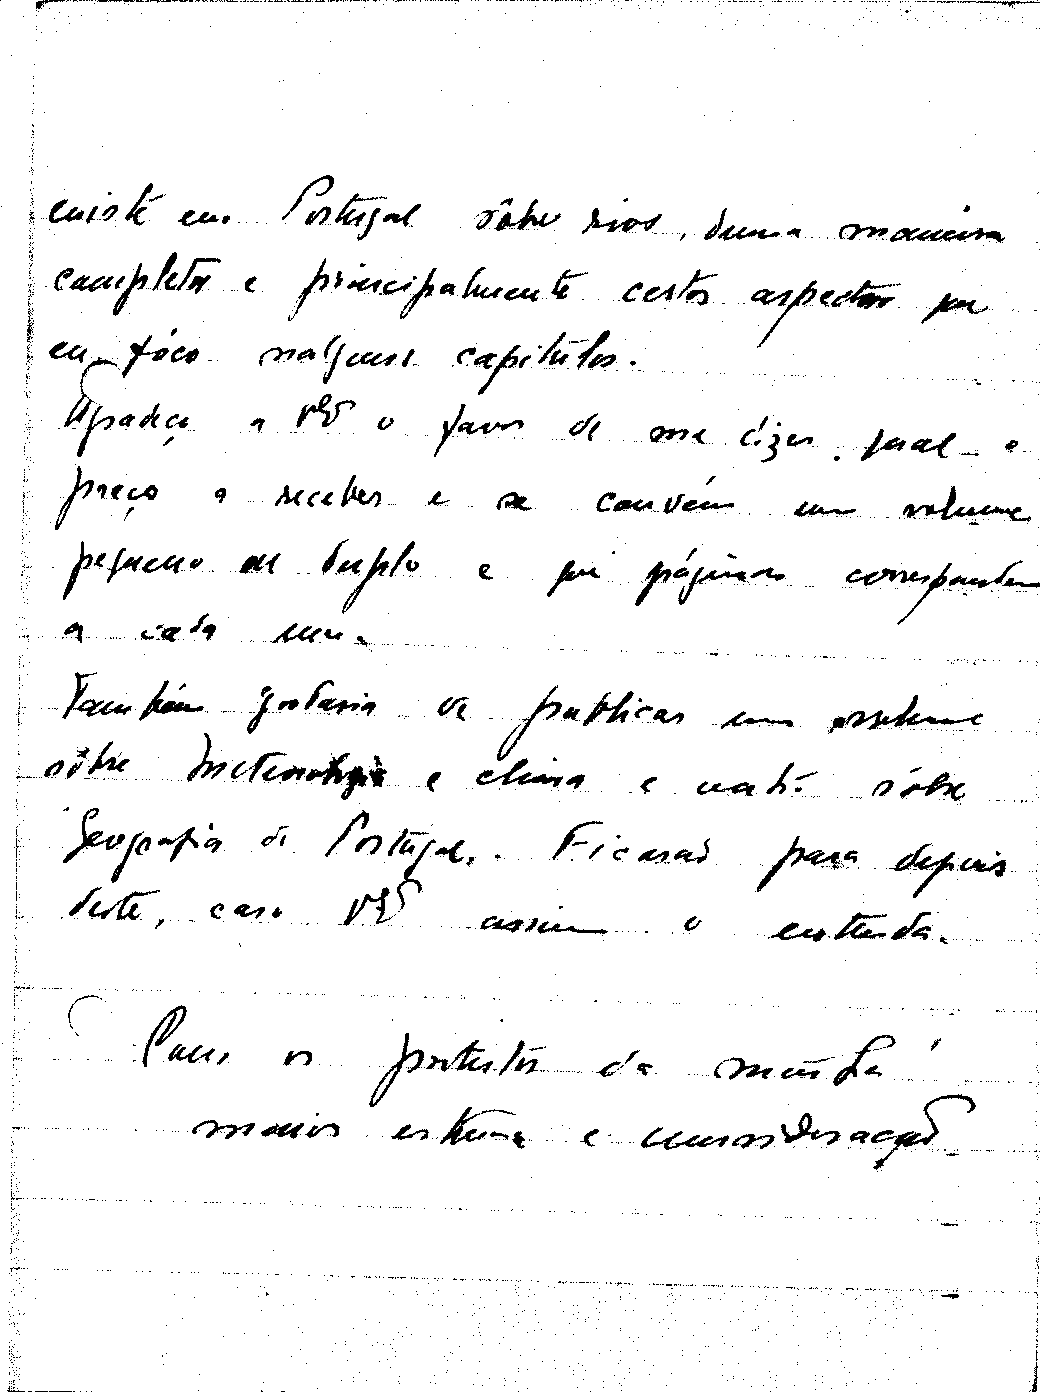 existe em Portugal sôbre rios, duma maneira
completa e principalmente certos aspectos que
eu fóco nalguns capitulos.
Agradeço a VEx o favor de me dizer qual o
preço a receber e se convém um volume
pequeno ou duplo e que páginas correspondem
a cada um.
Também gostaria de publicar um volume
sôbre Meteorologia e clima e outro sôbre
Geografia de Portugal. Ficarão para depois
deste, caso VEx assim o entenda.
Com os protestos da minha
maior estima e consideração